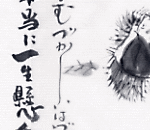 むづかしいはづ
本当に一生懸命